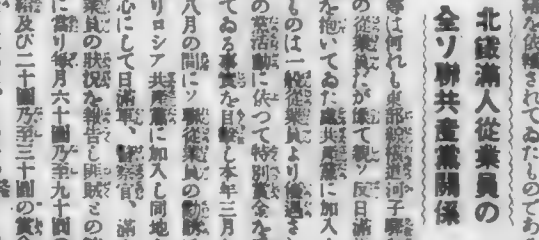 されてゐたものであ
北鐵滿人從業員の
全ソ聯共靑黨關係
は何れも東部線張道河子驛
の從業員だが嘗て親ソ反日滿
を抱いてゐた處共靑黨に加入
ものは一般從業員より優遇さ
の黨活動に依つて特別賞金を
てゐる事實を目擊し本年三月
八月の間にソ聯從業員の勸誘
りロシア共靑黨に加入し同地
心にして日滿軍、警察官、滿
業員の狀況を報告し匪賊との
に當り每月六十圓乃至九十圓の
及び二十圓乃至三十圓の賞金